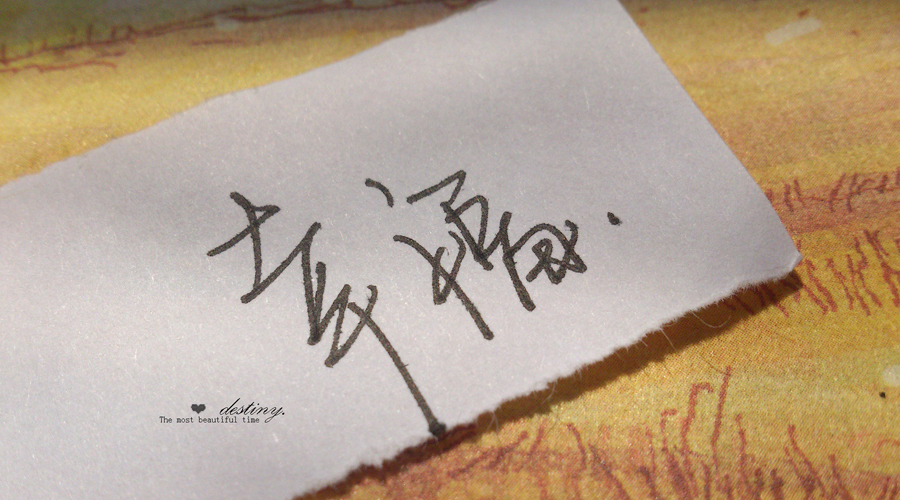 幸福.
❤ destiny.
The most beautiful time